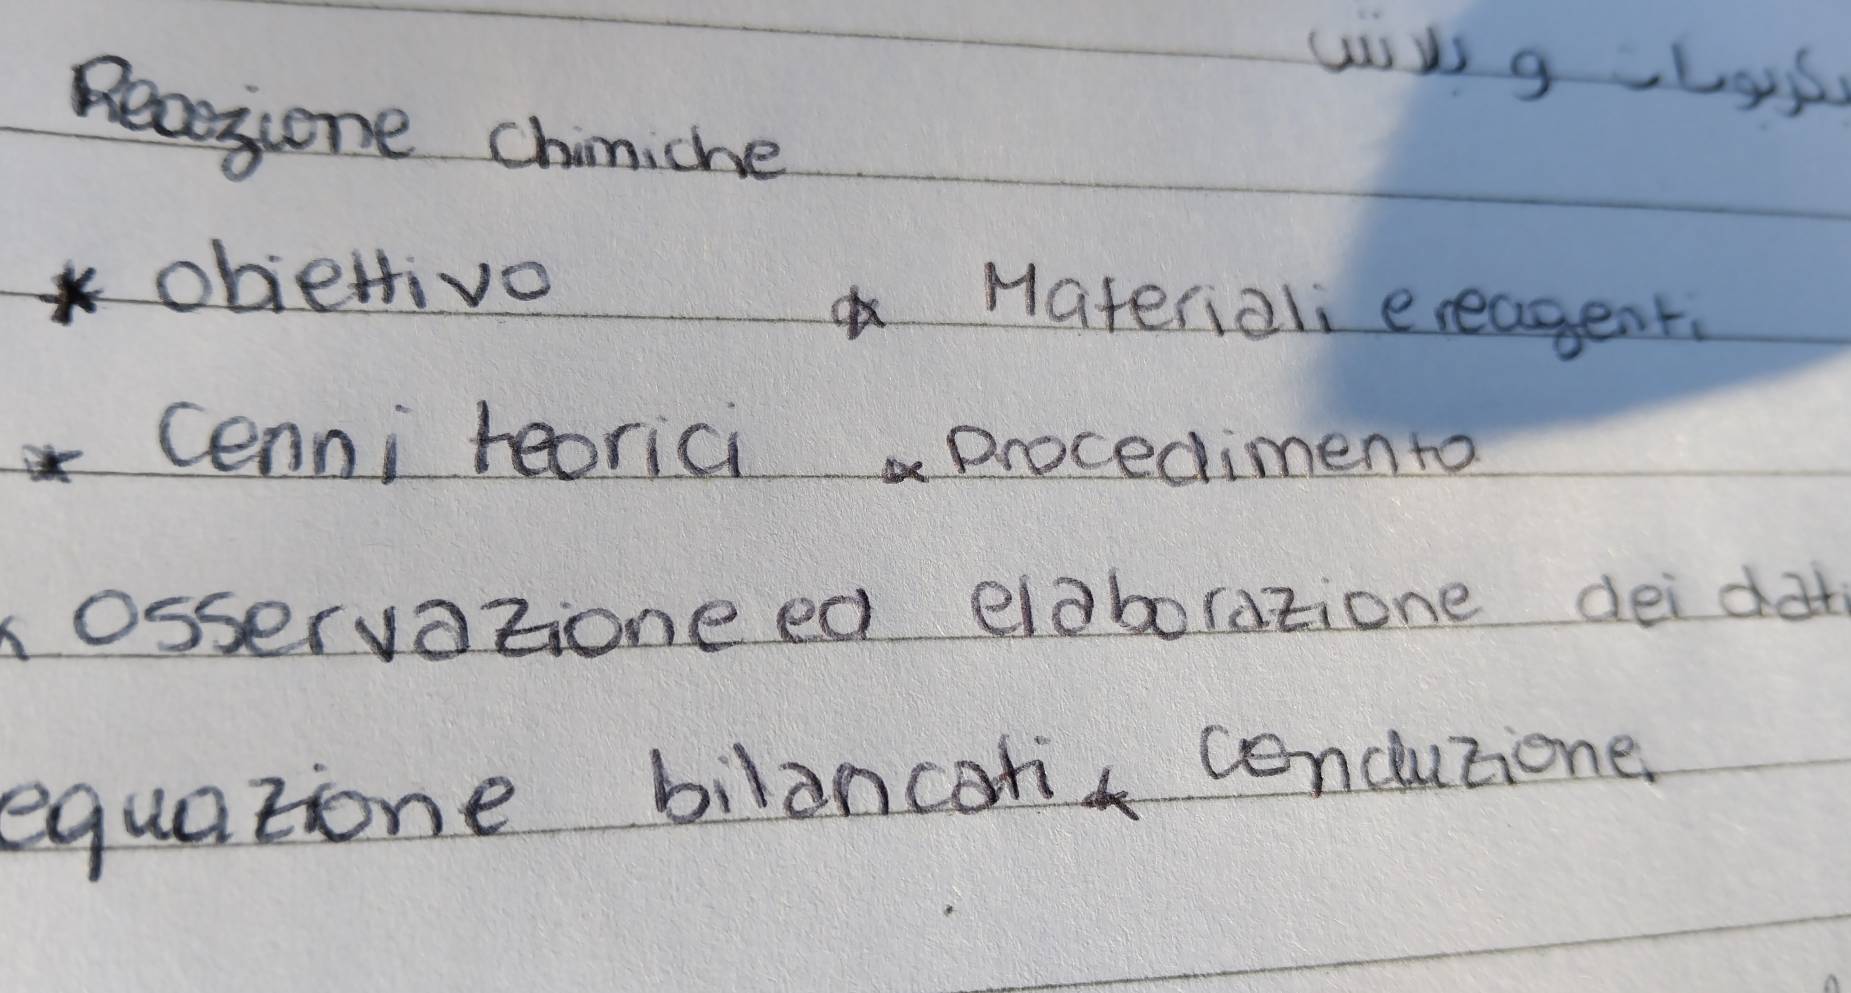 و بلاتش
Reazione chimiche
* obiettivo * Materiali e reagenti
* Cenni teorici * Procedimento
* Osservazione ed elaborazione dei dati
equazione bilancati * Concluzione